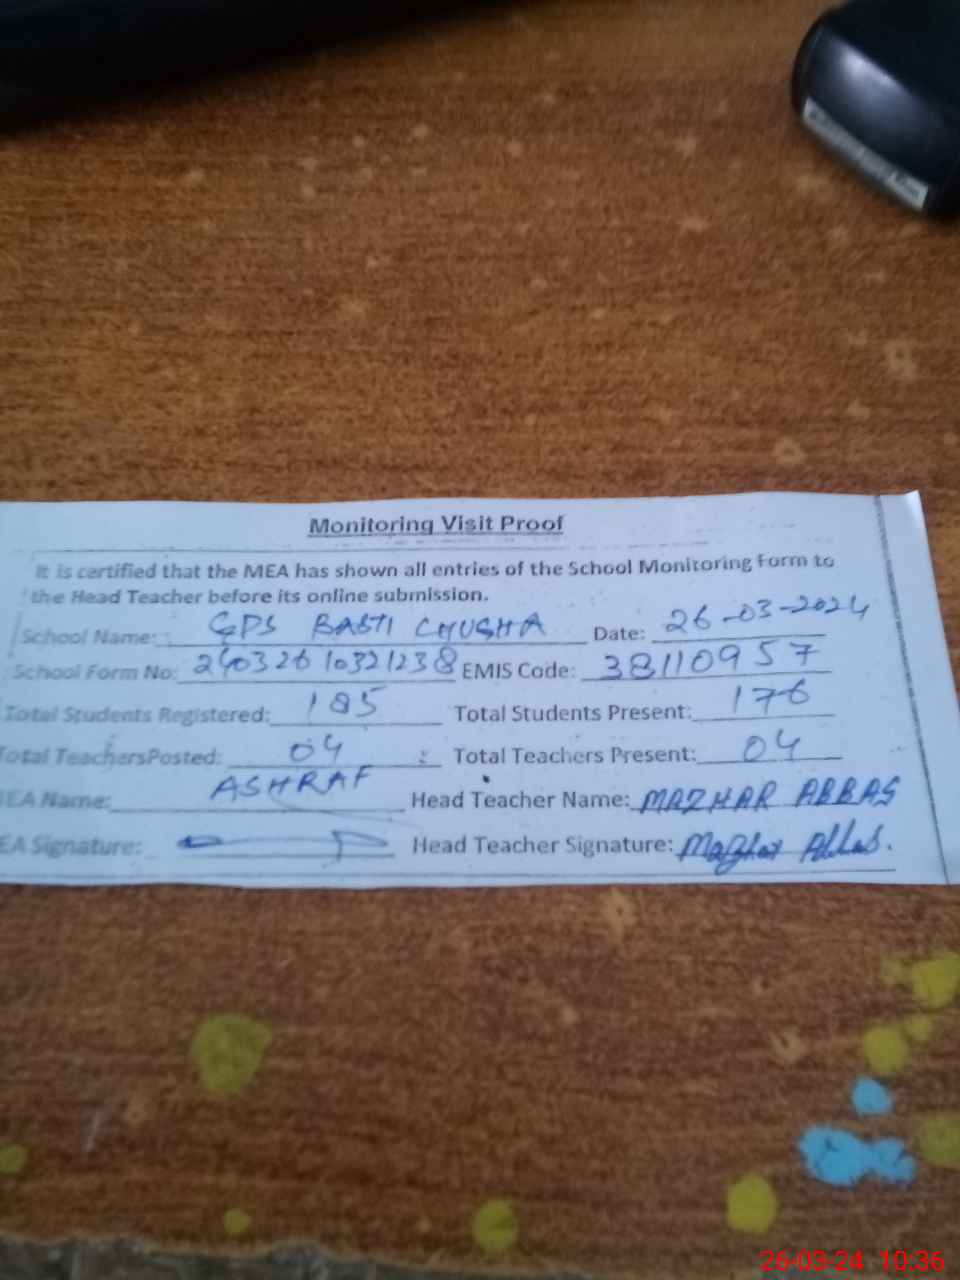 Monitoring Visit Proof
It is certified that the MEA has shown all entries of the School Monitoring Form to
the Head Teacher before its online submission.
School Name: GPS BASTI CHUSHA Date: 26-03-2024
School Form No: 24032610321238 EMIS Code: 38110957
Total Students Registered: 185 Total Students Present: 176
Total TeachersPosted: 04 Total Teachers Present: 04
MEA Name: ASHRAF Head Teacher Name: MAZHAR ABBAS
EA Signature: Head Teacher Signature: Mazhar Abbas.
26-03-24 10:36